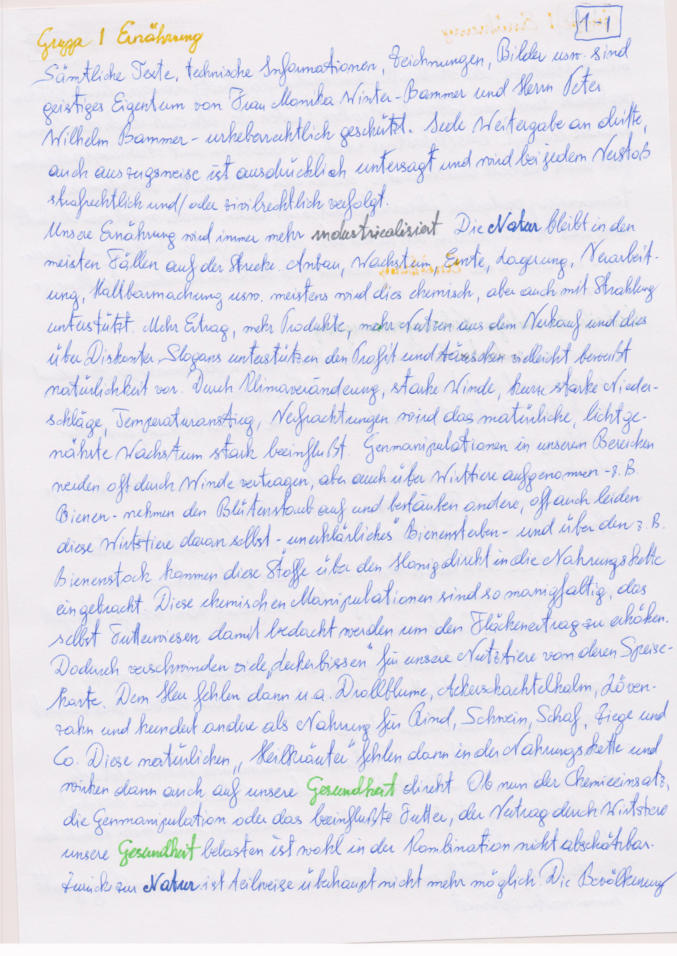 1-1
Gruppe 1 Ernährung
Sämtliche Texte, technische Informationen, Zeichnungen, Bilder usw. sind
geistiges Eigentum von Frau Monika Winter-Bammer und Herrn Peter
Wilhelm Bammer - urheberrechtlich geschützt. Jede Weitergabe an dritte,
auch auszugsweise ist ausdrücklich untersagt und wird bei jedem Verstoß
strafrechtlich und/oder zivilrechtlich verfolgt.
Unsere Ernährung wird immer mehr industriealisiert. Die Natur bleibt in den
meisten Fällen auf der Strecke. Anbau, Wachstum, Ernte, Lagerung, Verarbeit-
ung, Haltbarmachung usw. meistens wird dies chemisch, aber auch mit Strahlung
unterstützt. Mehr Etrag, mehr Produkte, mehr Nutzen aus dem Verkauf und dies
über Diskonter. Slogans unterstützen den Profit und täuschen vielleicht bewußt
natürlichkeit vor. Durch Klimaveränderung, starke Winde, kurze starke Nieder-
schläge, Temperaturanstieg, Verfrachtungen wird das natürliche, lichtge-
nährte Wachstum stark beeinflußt. Genmanipulationen in unseren Bereichen
werden oft durch Winde vertragen, aber auch über Wirttiere aufgenommen - z.B
Bienen - nehmen den Blütenstaub auf und bestäuben andere, oft auch leiden
diese Wirtstiere daran selbst - unerklärliches" Bienensterben - und über den z.B.
Bienenstock kommen diese Stoffe über den Honig direkt in die Nahrungskette
eingebracht. Diese chemischen Manipulationen sind so manigfaltig, das
selbst Futterwiesen damit bedacht werden um den Flächenertrag zu erhöhen.
Dadurch verschwanden viele „Leckerbissen" für unsere Nutztiere von deren Speise-
karte. Dem Heu fehlen dann u.a. Drollblume, Ackerschachtelhalm, Löwen-
zahn und hundert andre als Nahrung für Rind, Schwein, Schaf, Ziege und
Co. Diese natürlichen „Heilkräuter" fehlen dann in der Nahrungskette und
wirken dann auch auf unsere Gesundheit direkt. Ob nun der Chemieeinsatz,
die Genmanipulation oder das beeinflußte Futter, der Vertrag durch Wirtstiere
unsere Gesundheit belasten ist wohl in der Kombination nicht abschätzbar.
Zurück zur Natur ist teilweise überhaupt nicht mehr möglich. Die Bevölkerung